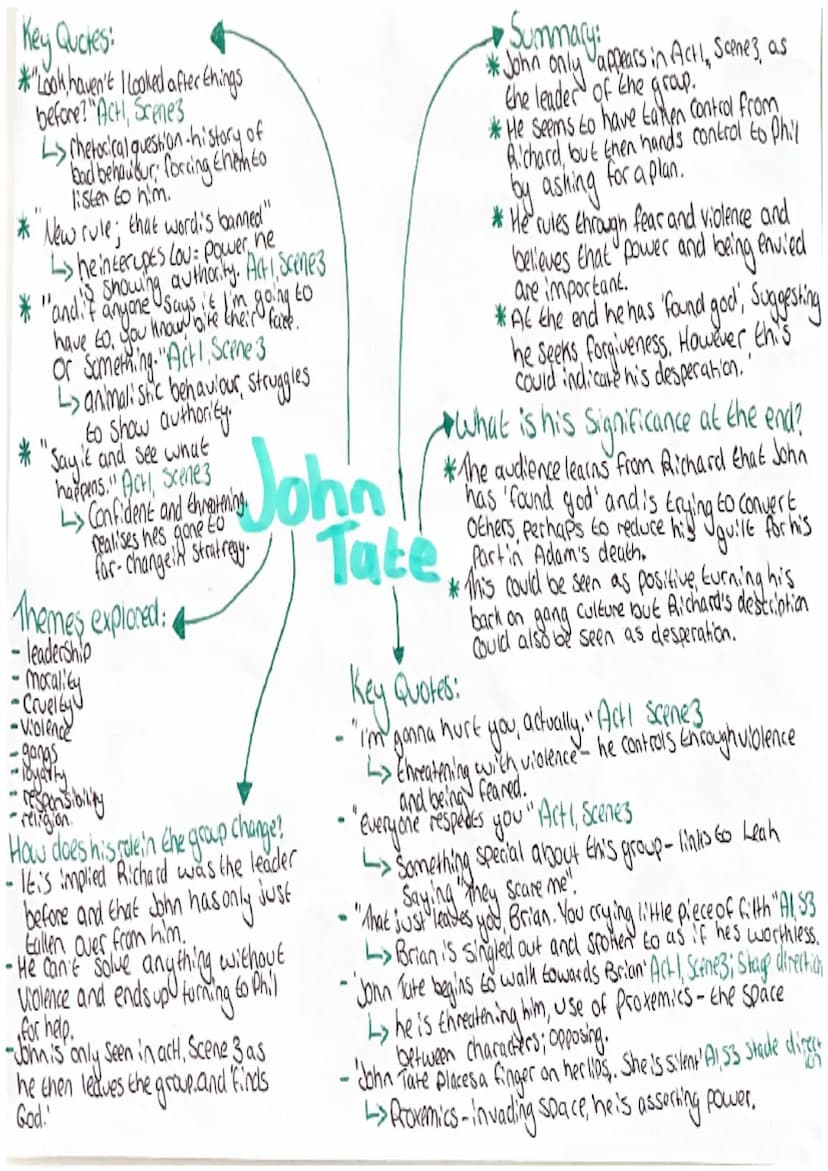 Key Quotes:
* "Look, haven't I looked after things
before?" Act 1, Scene 3
↳ rhetorical question - history of
bad behaviour, forcing them to
listen to him.
* "New rule; that word is banned"
↳ he interupts Lou = power, he
is showing authority. Act 1, Scene 3
* "and if anyone says it I'm going to
have to, you know, bite their face.
Or something." Act 1, Scene 3
↳ animalistic behaviour, struggles
to show authority.
* "Say it and see what
happens." Act 1, Scene 3
↳ Confident and threatning,
realises hes gone to
far - change in stratregy.
Summary:
* John only appears in Act 1, Scene 3, as
the leader of the group.
* He seems to have taken control from
Richard, but then hands control to Phil
by asking for a plan.
* He rules through fear and violence and
believes that power and being envied
are important.
* At the end he has 'found god', suggesting
he seeks forgiveness. However this
could indicate his desperation.'
What is his significance at the end?
* The audience learns from Richard that John
has 'found god' and is trying to convert
others, perhaps to reduce his guilt for his
part in Adam's death.
* This could be seen as positive, turning his
back on gang culture but Richard's description
could also be seen as desperation.
John
Tate
Themes explored:
- leadership
- morality
- Cruelty
- violence
- gangs
- loyalty
- responsibility
- religion.
How does his role in the group change?
- It is implied Richard was the leader
before and that John has only just
taken over from him.
- He can't solve anything without
violence and ends up turning to Phil
for help.
- John is only seen in act 1, Scene 3 as
he then leaves the group and 'finds
God.'
Key Quotes:
- "I'm gonna hurt you, actually." Act 1 Scene 3
↳ threatening with violence - he controls through violence
and being feared.
- "everyone respects you" Act 1, Scene 3
↳ Something special about this group - links to Leah
saying "they scare me".
- "That just leaves you, Brian. You crying little piece of filth" A1, S3
↳ Brian is singled out and spoken to as if hes worthless.
- 'John Tate begins to walk towards Brian' Act 1, Scene 3; Stage direction
↳ he is threatening him, use of Proxemics - the space
between characters; opposing.
- 'John Tate places a finger on her lips. She is silent' A1, S3 stade direction
↳ Proxemics - invading space, he is asserting power.